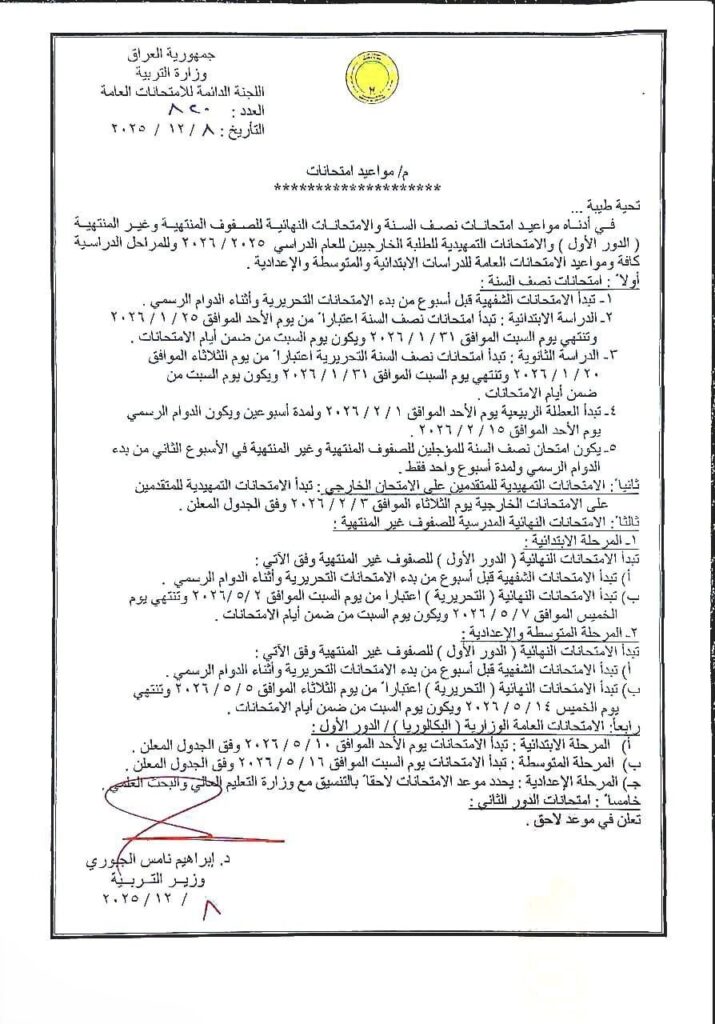 جمهورية العراق
وزارة التربية
اللجنة الدائمة للامتحانات العامة
العدد : ٨٢٠
التأريخ : ٨ / ١٢ / ٢٠٢٥
م/ مواعيد امتحانات
********************
تحية طيبة ...
في أدناه مواعيد امتحانات نصف السنة والامتحانات النهائية للصفوف المنتهية وغير المنتهية
( الدور الأول ) والامتحانات التمهيدية للطلبة الخارجيين للعام الدراسي ٢٠٢٥ / ٢٠٢٦ وللمراحل الدراسية
كافة ومواعيد الامتحانات العامة للدراسات الابتدائية والمتوسطة والإعدادية .
أولاً : امتحانات نصف السنة :
١- تبدأ الامتحانات الشفهية قبل أسبوع من بدء الامتحانات التحريرية وأثناء الدوام الرسمي .
٢- الدراسة الابتدائية : تبدأ امتحانات نصف السنة اعتباراً من يوم الأحد الموافق ٢٥ / ١ / ٢٠٢٦
وتنتهي يوم السبت الموافق ٣١ / ١ / ٢٠٢٦ ويكون يوم السبت من ضمن أيام الامتحانات .
٣- الدراسة الثانوية : تبدأ امتحانات نصف السنة التحريرية اعتباراً من يوم الثلاثاء الموافق
٢٠ / ١ / ٢٠٢٦ وتنتهي يوم السبت الموافق ٣١ / ١ / ٢٠٢٦ ويكون يوم السبت من
ضمن أيام الامتحانات .
٤- تبدأ العطلة الربيعية يوم الأحد الموافق ١ / ٢ / ٢٠٢٦ ولمدة أسبوعين ويكون الدوام الرسمي
يوم الأحد الموافق ١٥ / ٢ / ٢٠٢٦ .
٥- يكون امتحان نصف السنة للمؤجلين للصفوف المنتهية وغير المنتهية في الأسبوع الثاني من بدء
الدوام الرسمي ولمدة أسبوع واحد فقط .
ثانياً: الامتحانات التمهيدية للمتقدمين على الامتحان الخارجي : تبدأ الامتحانات التمهيدية للمتقدمين
على الامتحانات الخارجية يوم الثلاثاء الموافق ٣ / ٢ / ٢٠٢٦ وفق الجدول المعلن .
ثالثاً: الامتحانات النهائية المدرسية للصفوف غير المنتهية :
١- المرحلة الابتدائية :
تبدأ الامتحانات النهائية ( الدور الأول ) للصفوف غير المنتهية وفق الآتي :
أ) تبدأ الامتحانات الشفهية قبل أسبوع من بدء الامتحانات التحريرية وأثناء الدوام الرسمي .
ب) تبدأ الامتحانات النهائية ( التحريرية ) اعتبارا من يوم السبت الموافق ٢ / ٥ /٢٠٢٦ وتنتهي يوم
الخميس الموافق ٧ / ٥ /٢٠٢٦ ويكون يوم السبت من ضمن أيام الامتحانات .
٢- المرحلة المتوسطة والإعدادية :
تبدأ الامتحانات النهائية ( الدور الأول ) للصفوف غير المنتهية وفق الآتي :
أ) تبدأ الامتحانات الشفهية قبل أسبوع من بدء الامتحانات التحريرية وأثناء الدوام الرسمي .
ب) تبدأ الامتحانات النهائية ( التحريرية ) اعتباراً من يوم الثلاثاء الموافق ٥ / ٥ / ٢٠٢٦ وتنتهي
يوم الخميس ١٤ / ٥ / ٢٠٢٦ ويكون يوم السبت من ضمن أيام الامتحانات .
رابعاً: الامتحانات العامة الوزارية ( البكالوريا ) // الدور الأول :
أ) المرحلة الابتدائية : تبدأ الامتحانات يوم الأحد الموافق ١٠ / ٥ / ٢٠٢٦ وفق الجدول المعلن .
ب) المرحلة المتوسطة : تبدأ الامتحانات يوم السبت الموافق ١٦ / ٥ / ٢٠٢٦ وفق الجدول المعلن .
جـ) المرحلة الإعدادية : يحدد موعد الامتحانات لاحقاً بالتنسيق مع وزارة التعليم العالي والبحث العلمي .
خامساً : امتحانات الدور الثاني :
تعلن في موعد لاحق .
د. إبراهيم نامس الجبوري
وزير التربية
٨ / ١٢ / ٢٠٢٥